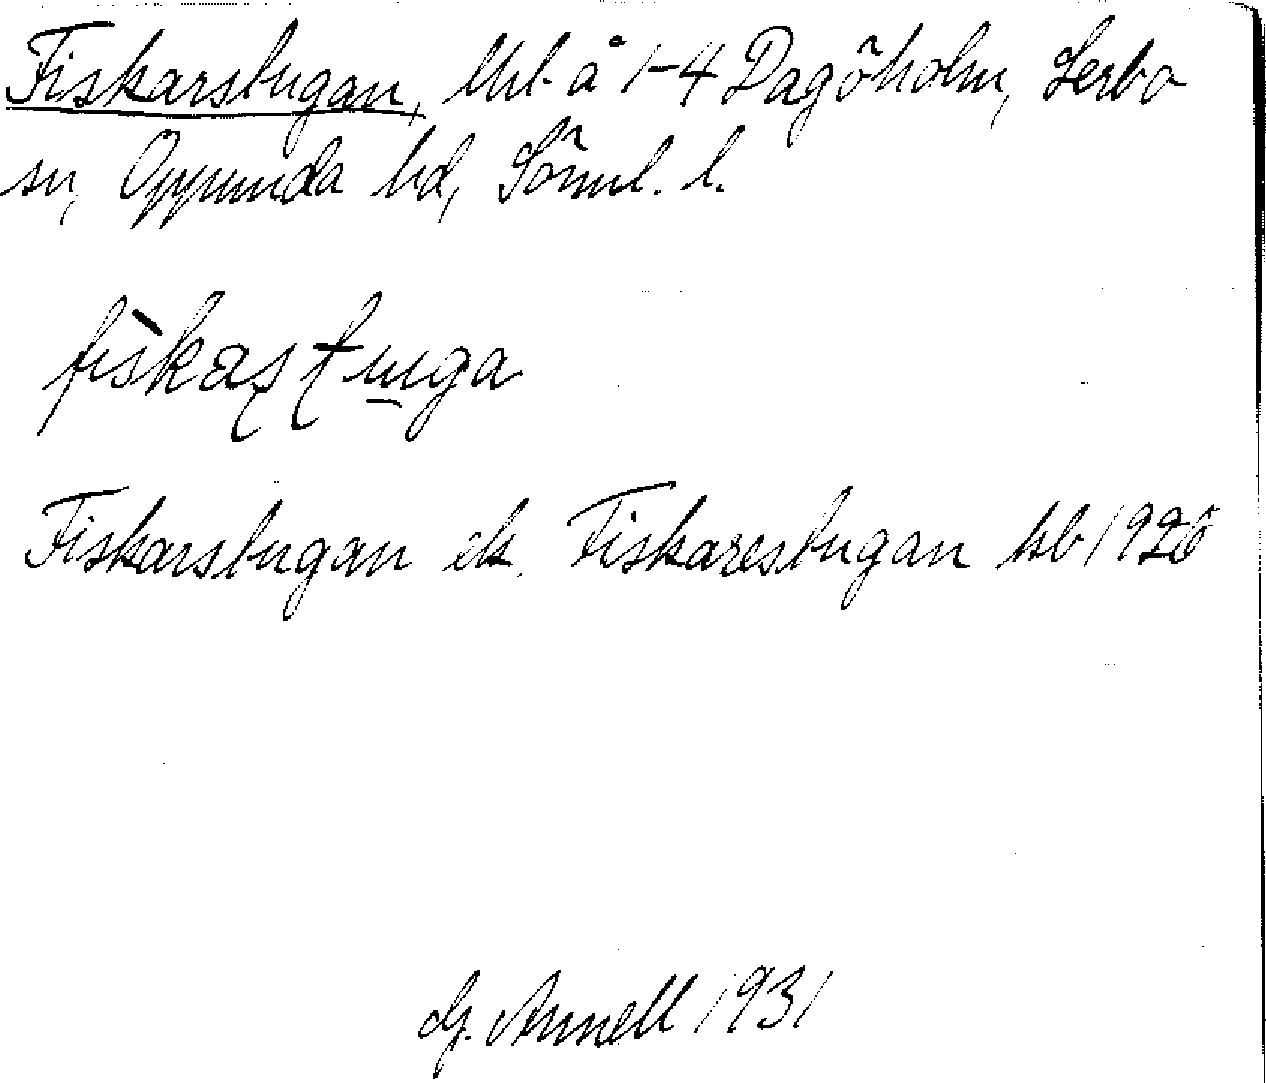 Fiskarstugan, Uhl. å 1-4 Dagöholm, Lerbo
sn, Oppunda hd, Söml. l.
fìskaʂʈuga
Fiskarstugan ek. Fiskarestugan hb 1926
G. Annell 1931